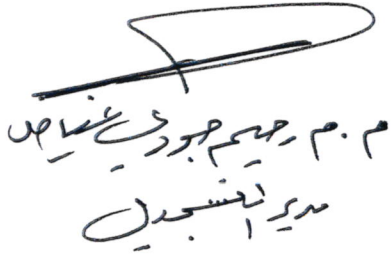 م.م رحيم جبوري غياض
مدير التسجيل